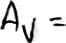 A_v =